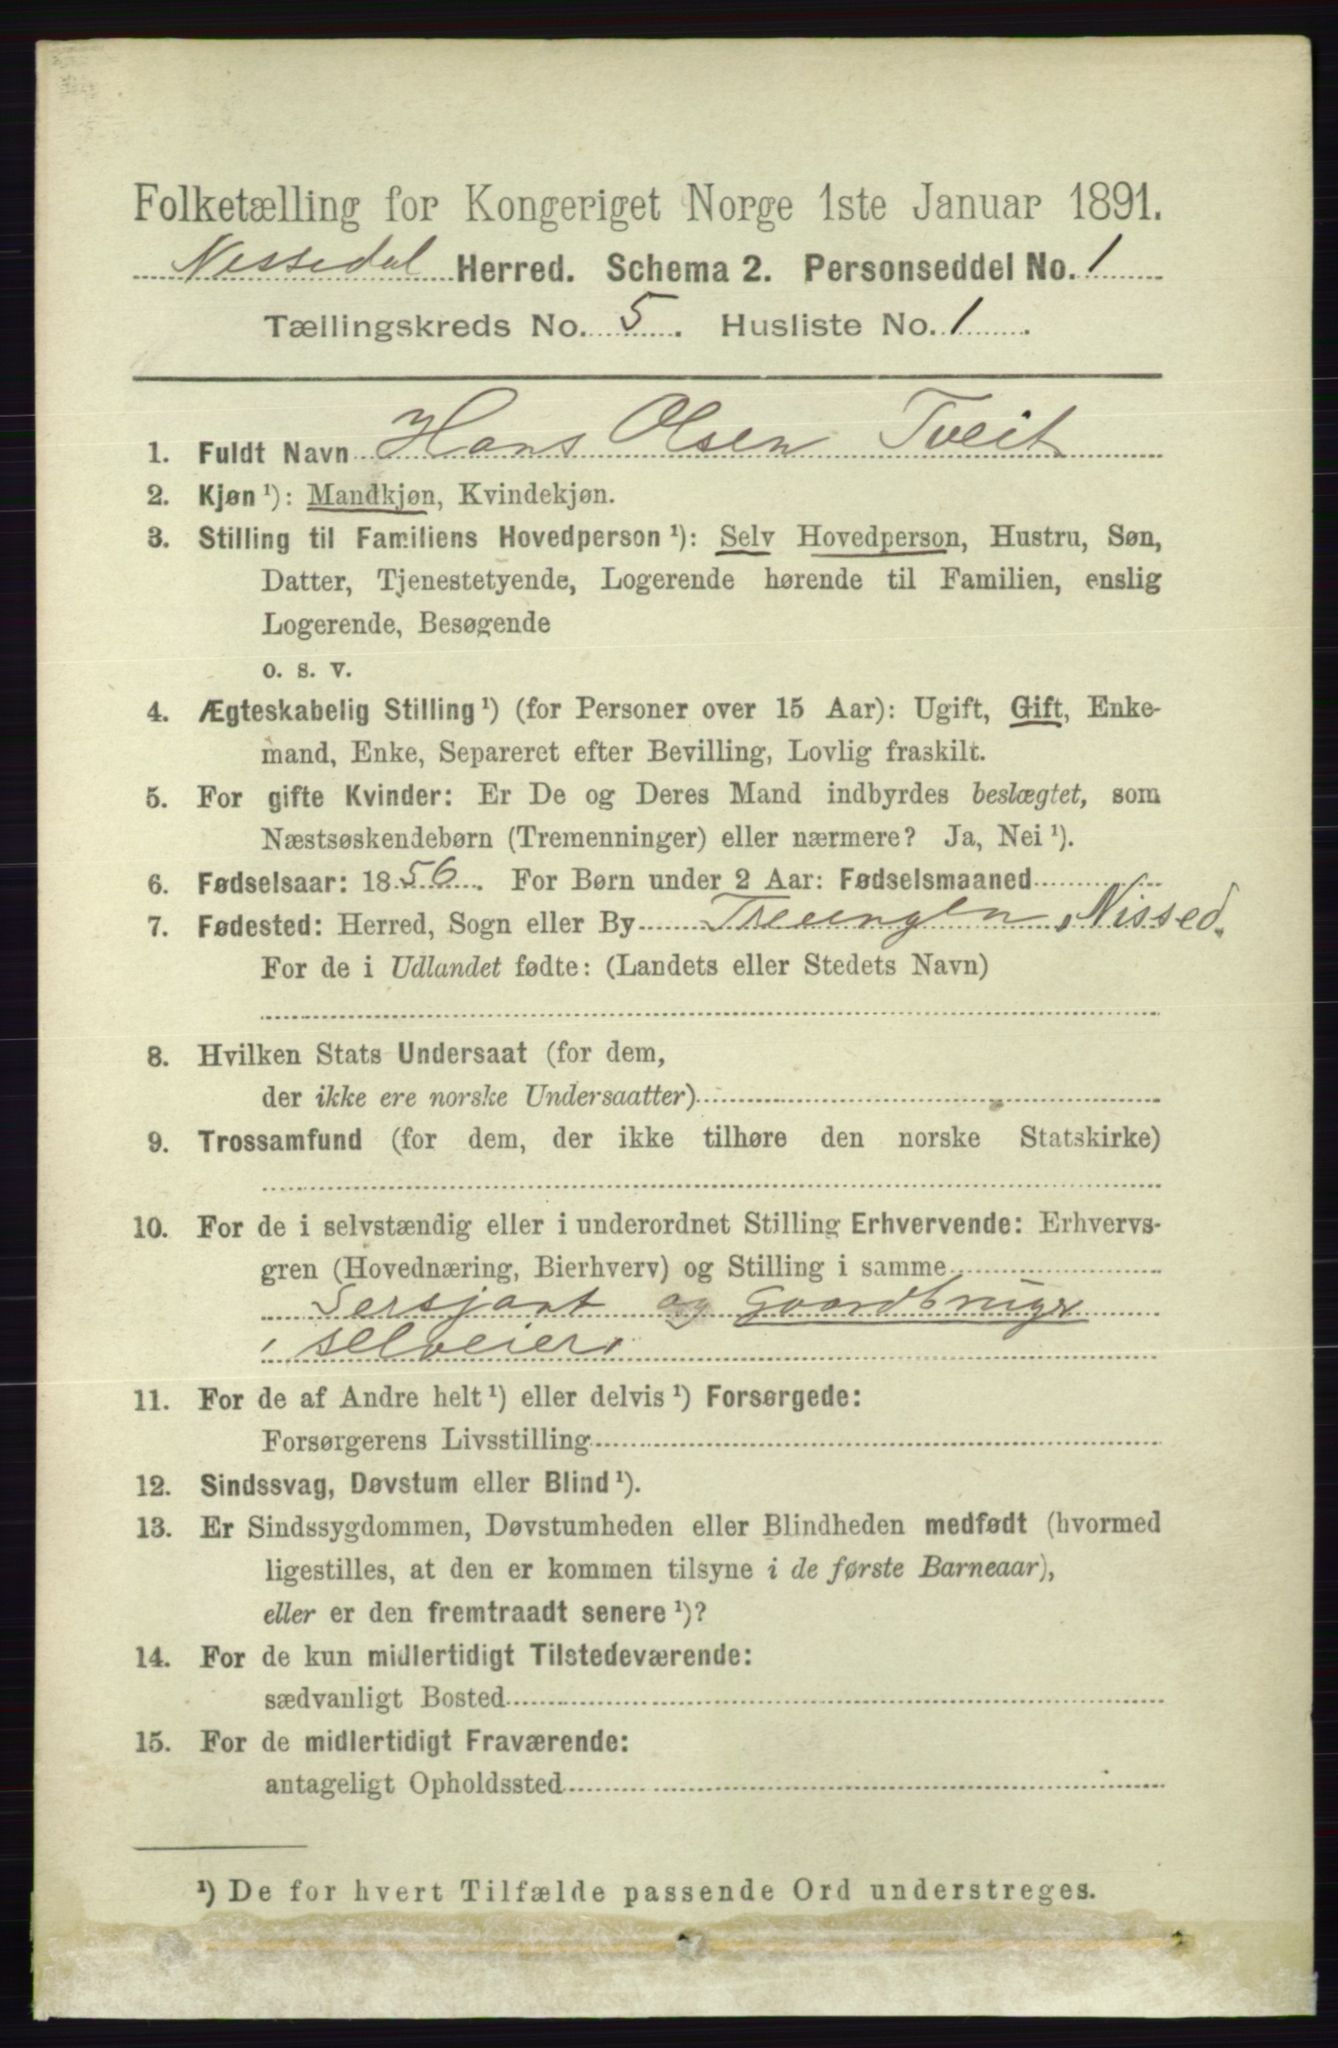 Folketælling for Kongeriget Norge 1ste Januar 1891.
Nissedal Herred. Schema 2. Personseddel No. 1
Tællingskreds No. 5. Husliste No. 1.
1. Fuldt Navn Hans Olsen Tveit
2. Kjøn ¹): Mandkjøn, Kvindekjøn.
3. Stilling til Familiens Hovedperson ¹): Selv Hovedperson, Hustru, Søn,
Datter, Tjenestetyende, Logerende hørende til Familien, enslig
Logerende, Besøgende
o. s. v.
4. Ægteskabelig Stilling ¹) (for Personer over 15 Aar): Ugift, Gift, Enke-
mand, Enke, Separeret efter Bevilling, Lovlig fraskilt.
5. For gifte Kvinder: Er De og Deres Mand indbyrdes beslægtet, som
Næstsøskendebørn (Tremenninger) eller nærmere? Ja, Nei ¹).
6. Fødselsaar: 1856. For Børn under 2 Aar: Fødselsmaaned
7. Fødested: Herred, Sogn eller By Treungen, Nissed.
For de i Udlandet fødte: (Landets eller Stedets Navn)
8. Hvilken Stats Undersaat (for dem,
der ikke ere norske Undersaatter)
9. Trossamfund (for dem, der ikke tilhøre den norske Statskirke)
10. For de i selvstændig eller i underordnet Stilling Erhvervende: Erhvervs-
gren (Hovednæring, Bierhverv) og Stilling i samme
Sersjant og Gaardbruger
, selveier,
11. For de af Andre helt ¹) eller delvis ¹) Forsørgede:
Forsørgerens Livsstilling
12. Sindssvag, Døvstum eller Blind ¹).
13. Er Sindssygdommen, Døvstumheden eller Blindheden medfødt (hvormed
ligestilles, at den er kommen tilsyne i de første Barneaar),
eller er den fremtraadt senere ¹)?
14. For de kun midlertidigt Tilstedeværende:
sædvanligt Bosted
15. For de midlertidigt Fraværende:
antageligt Opholdssted
¹) De for hvert Tilfælde passende Ord understreges.